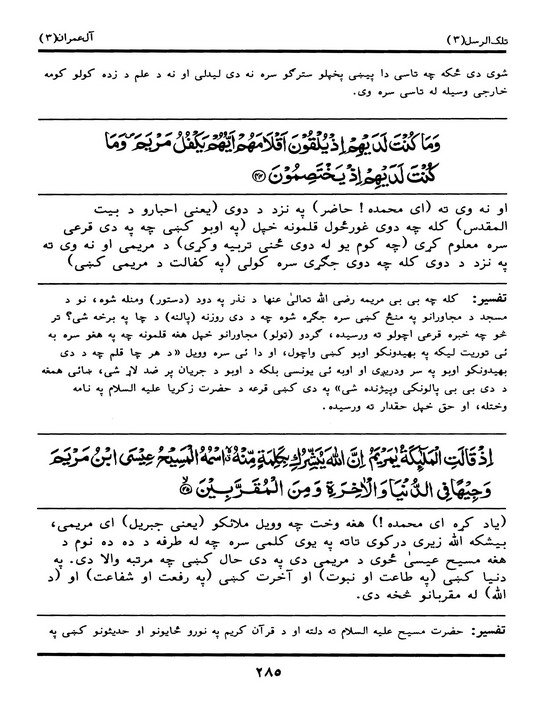 تلک الرسل(۳)
آل عمران(۳)
شوی دی ځکه چه تاسی دا پیښی پخپلو سترګو سره نه دی لیدلی او نه د علم د زده کولو کومه
خارجی وسیله له تاسی سره وی.
وَمَا كُنْتَ لَدَيْهِمْ إِذْ يُلْقُوْنَ أَقْلَامَهُمْ أَيُّهُمْ يَكْفُلُ مَرْيَمَ وَمَا
كُنْتَ لَدَيْهِمْ إِذْ يَخْتَصِمُوْنَ ﴿۴۴﴾
او نه وی ته (ای محمده! حاضر) په نزد د دوی (یعنی احبارو د بیت
المقدس) کله چه دوی غورځول قلمونه خپل (په اوبو کښی چه په دی قرعی
سره معلوم کړی (چه کوم یو له دوی ځنی تربیه وکړی) د مریمی او نه وی ته
په نزد د دوی کله چه دوی جګړی سره کولی (په کفالت د مریمی کښی)
تفسیر: کله چه بی بی مریمه رضی الله تعالیٰ عنها د نذر په دود (دستور) ومنله شوه، نو د
مسجد د مجاورانو په منځ کښی سره جګړه شوه چه د دی روزنه (پالنه) د چا په برخه شی؟ تر
څو چه خبره قرعی اچولو ته ورسیده، ګردو (تولو) مجاورانو خپل هغه قلمونه چه په هغو سره به
ئی توریت لیکه په بهیدونکو اوبو کښی واچول، او دا ئی سره وویل «د هر چا قلم چه د دی
بهیدونکو اوبو په سر ودریږی او اوبه ئی یونسی بلکه د اوبو د جریان پر ضد لاړ شی، ښائی همغه
د دی بی بی پالونکی وپیژنده شی» په دی کښی قرعه د حضرت زکریا علیه السلام په نامه
وختله، او حق خپل حقدار ته ورسیده.
إِذْ قَالَتِ الْمَلٰٓئِكَةُ يٰمَرْيَمُ إِنَّ اللهَ يُبَشِّرُكِ بِكَلِمَةٍ مِّنْهُ اسْمُهُ الْمَسِيْحُ عِيْسَى ابْنُ مَرْيَمَ
وَجِيْهًا فِى الدُّنْيَا وَالْاٰخِرَةِ وَمِنَ الْمُقَرَّبِيْنَ ﴿۴۵﴾
(یاد کره ای محمده!) هغه وخت چه وویل ملائکو (یعنی جبریل) ای مریمی،
بیشکه الله زیری درکوی تاته په یوی کلمی سره چه له طرفه د ده ده نوم د
هغه مسیح عیسیٰ ځوی د مریمی دی په دی حال کښی چه مرتبه والا دی. په
دنیا کښی (په طاعت او نبوت) او آخرت کښی (په رفعت او شفاعت) او (د
الله) له مقربانو څخه دی.
تفسیر: حضرت مسیح علیه السلام ته دلته او د قرآن کریم په نورو ځایونو او حدیثونو کښی په
۲۸۵